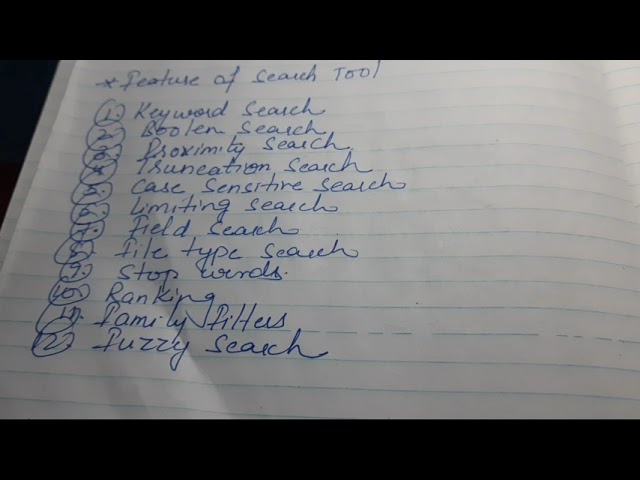 * Feature of Search Tool
1. Keyword Search
2. Boolen Search
3. Proximity Search
4. Truncation Search
5. Case Sensitive Search
6. Limiting Search
7. Field Search
8. File type Search
9. Stop words.
10. Ranking
11. Family Filters
12. Fuzzy Search